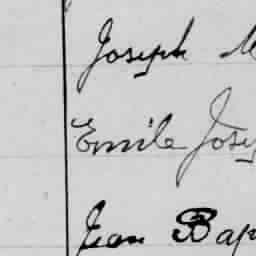 Joseph
Emile Josep
Jean Bap